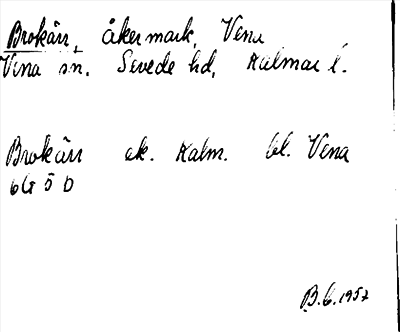 Brokärr, åkermark, Vena
Vena sn. Sevede hd, Kalmar l.
Brokärr ek. Kalm. bl. Vena
6G 5 D
B.G. 1957